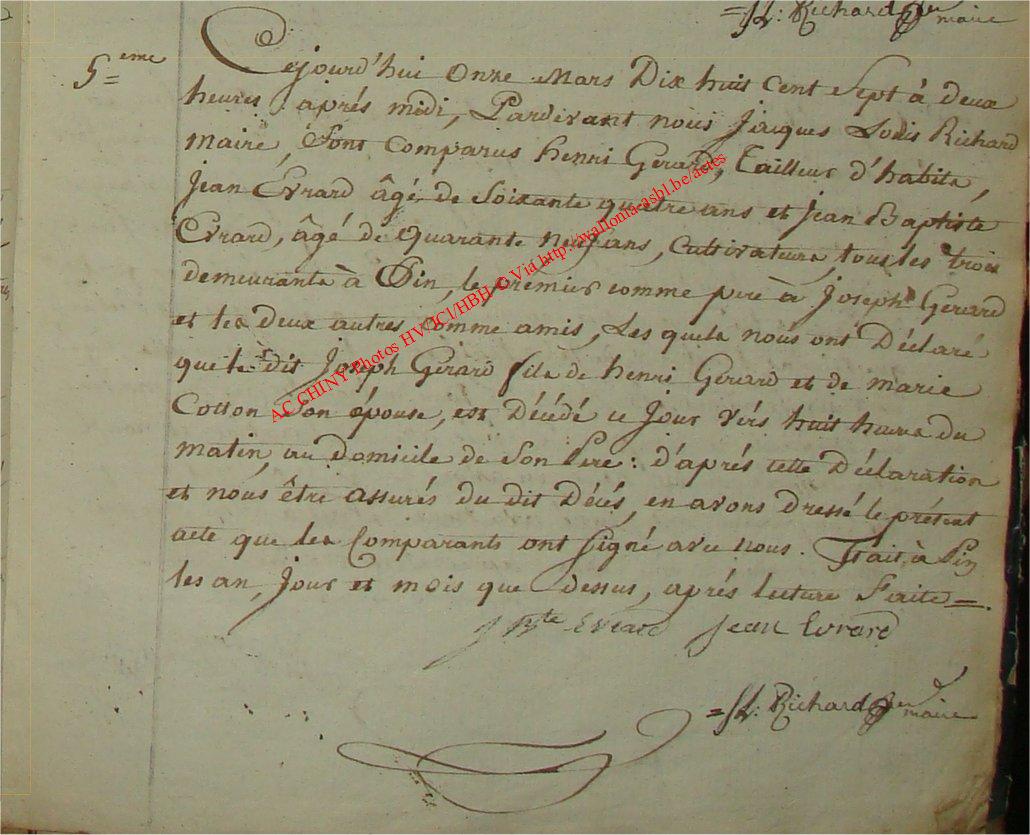 =JL: Richard maire
5=eme
Cejourd'hui Onze Mars Dix huit Cent Sept à deux
heures après midi, Pardevant nous Jacques Louis Richard
Maire, Sont Comparus henri Gerard, Tailleur d'habits,
Jean Evrard âgé de Soixante quatre ans et Jean Baptiste
Evrard, âgé de Quarante Neuf ans, Cultivateurs, tous les trois
demeurants à Pin, le premier comme pere à Joseph Gerard
et les deux autres Comme amis, Les quels nous ont Déclaré
que le dit Joseph Gerard fils de henri Gerard et de marie
Cotton Son épouse, est Décédé ce Jour vérs huit heures du
matin, au Domicile de Son Pere: d'aprés cette Déclaration
et nous être assurés du dit Décés, en avons dressé le présent
acte que les Comparants ont Signé avec nous. Fait à Pin
les an, Jour et mois que dessus, aprés lecture Faite=.
J Bte Evrard Jean Evrard
=JL: Richard maire
AC CHINY Photos HV/JCl/HBH © Via http://wallonia-asbl.be/actes